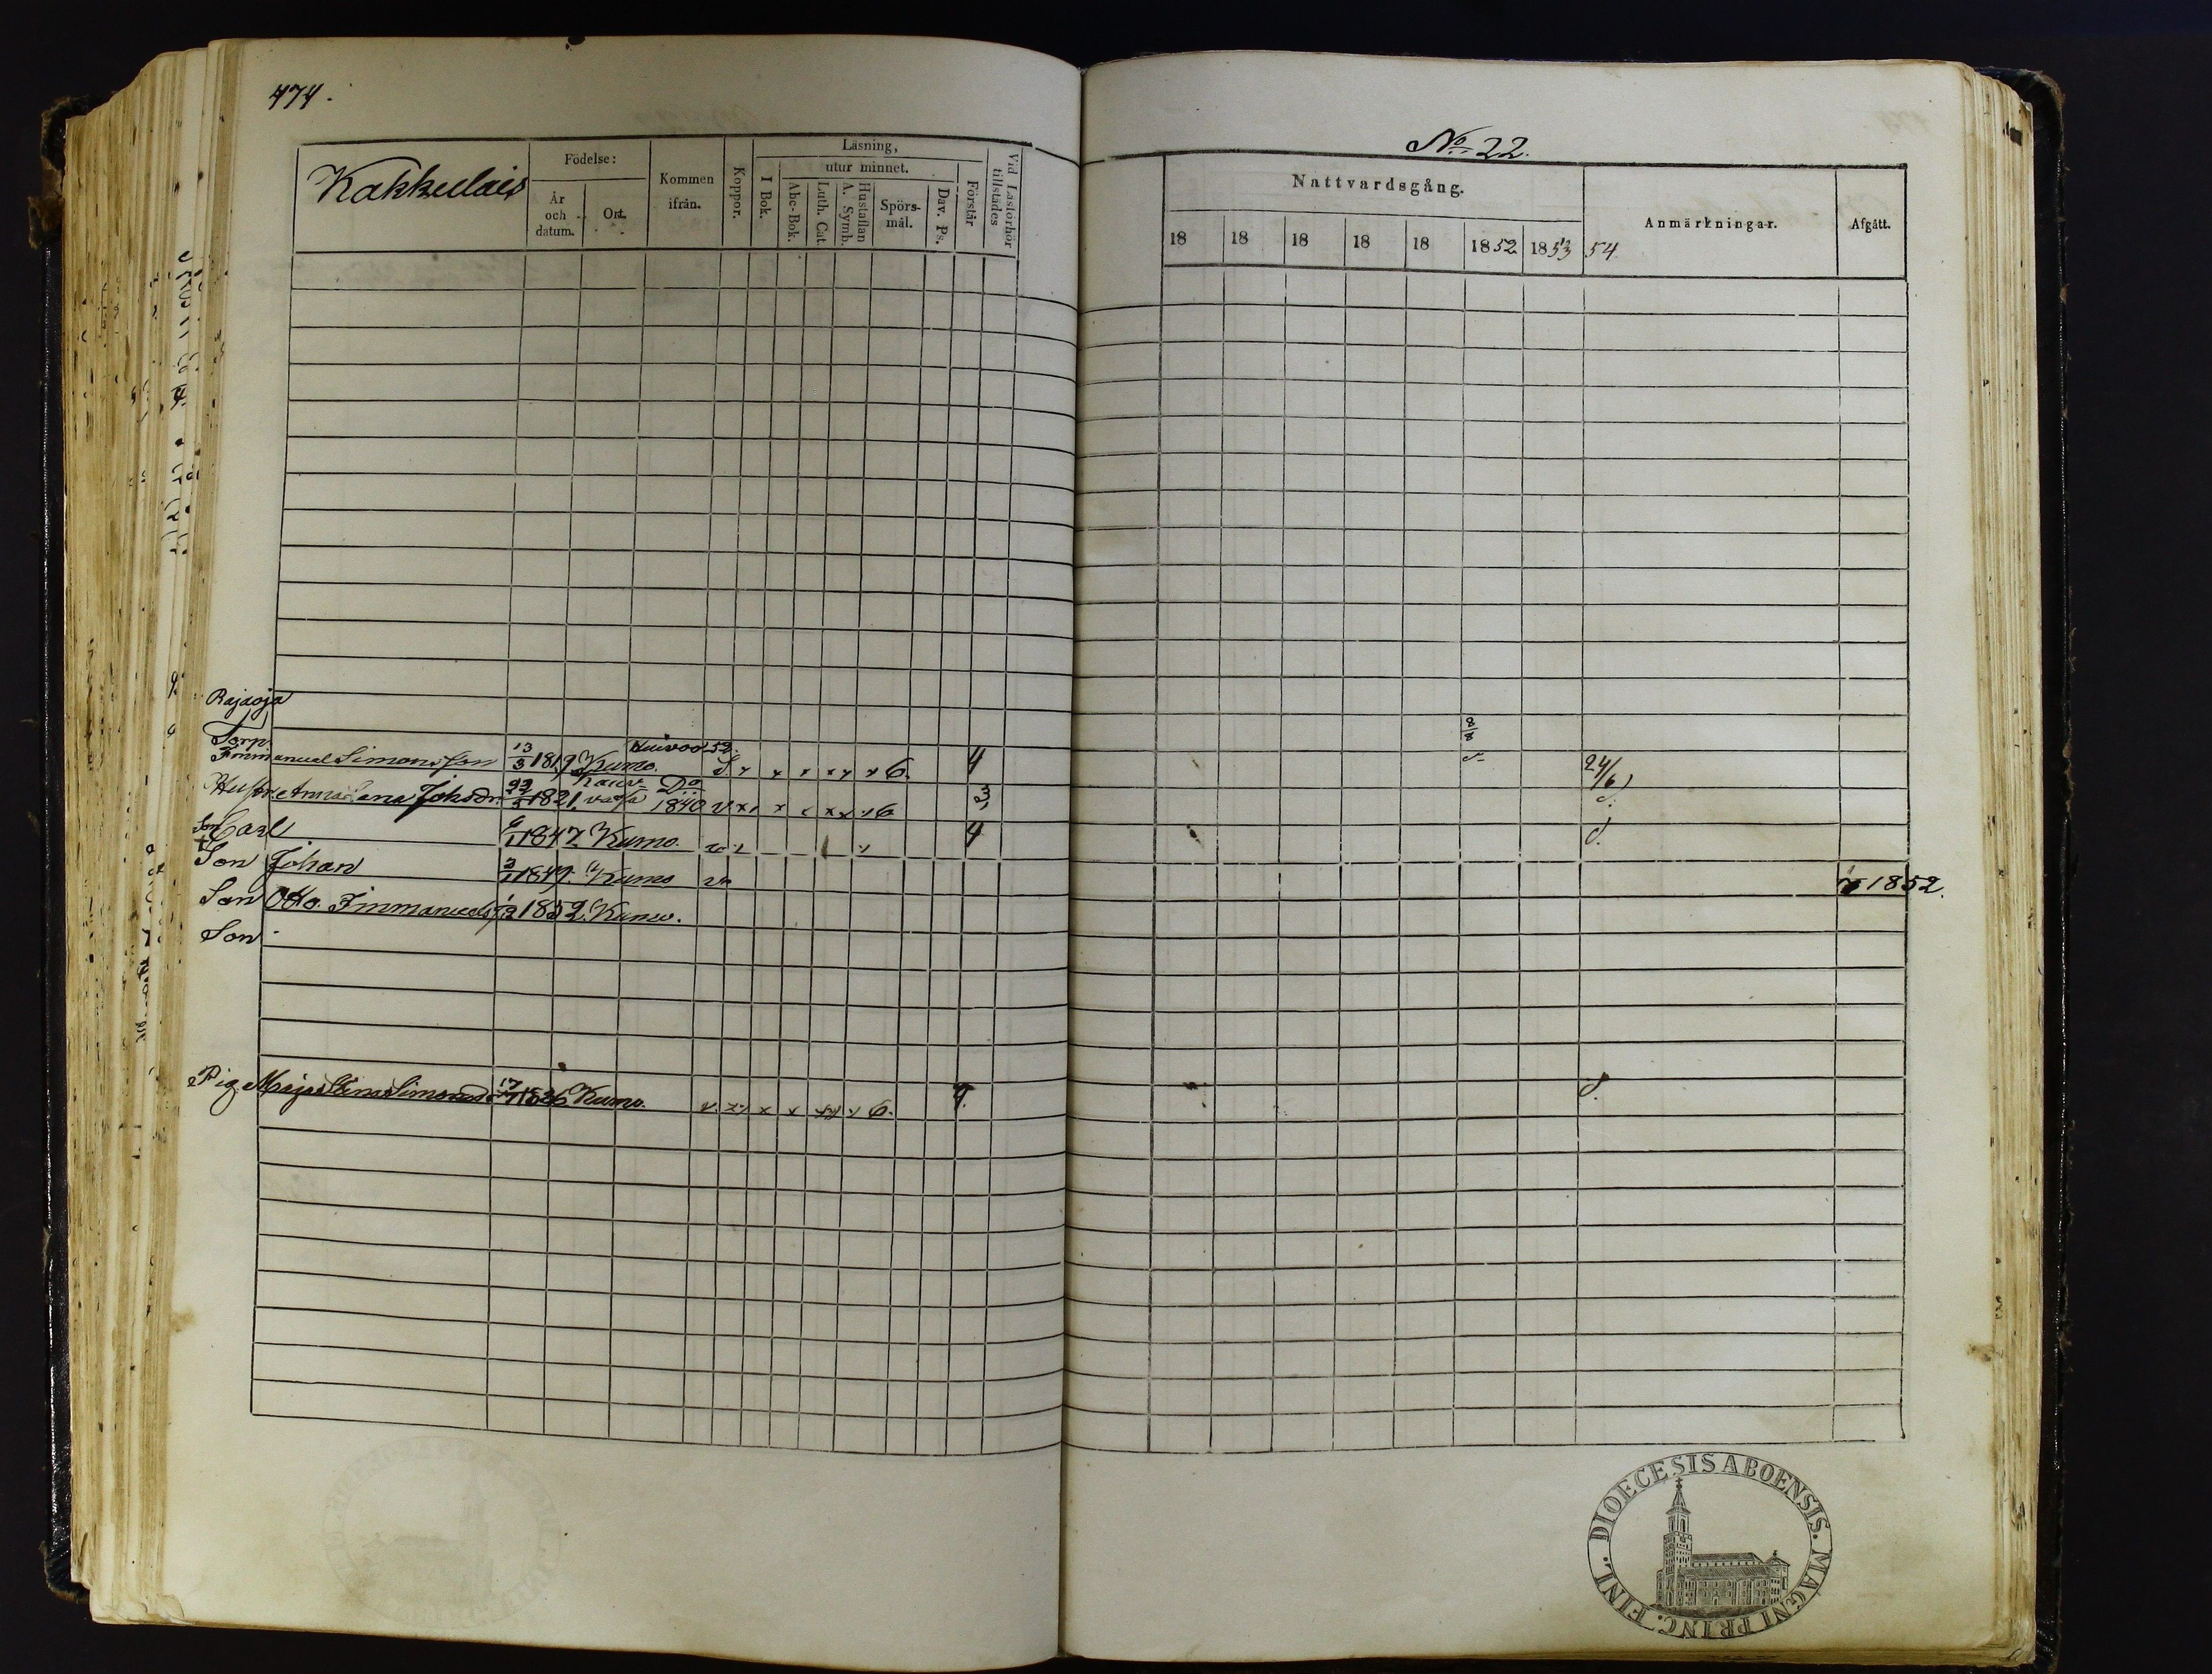 474.
No 22.
Kakkulais
Födelse:
År och datum.
Ort.
Kommen ifrån.
Koppor.
Läsning,
I Bok.
utur minnet.
Abc-Bok.
Luth. Cat.
Hustaflan A. Symb.
Spörsmål.
Dav. Ps.
Förstår
Vid Läsförhör tillstädes
Nattvardsgång.
18 18 18 18 18 1852 1853 54
Anmärkningar.
Afgått.
Rajaoja
Torp.
Immanuel Simonsson 13/3 1819 Kumo. 52. 6. 4 8/8 24/6
Hustr. Anna Johsdr. 1821 Do 1840 6 3
Son Carl 1847 Kumo. 4
Son Johan 1849 Kumo 1852.
Son Otto Immanuel 1852 Kumo.
Son
Pig. Maja Simonsd 17 1826 Kumo. 6. 4.
DIOECESIS ABOENSIS. MAGNI PRINC. FINL.